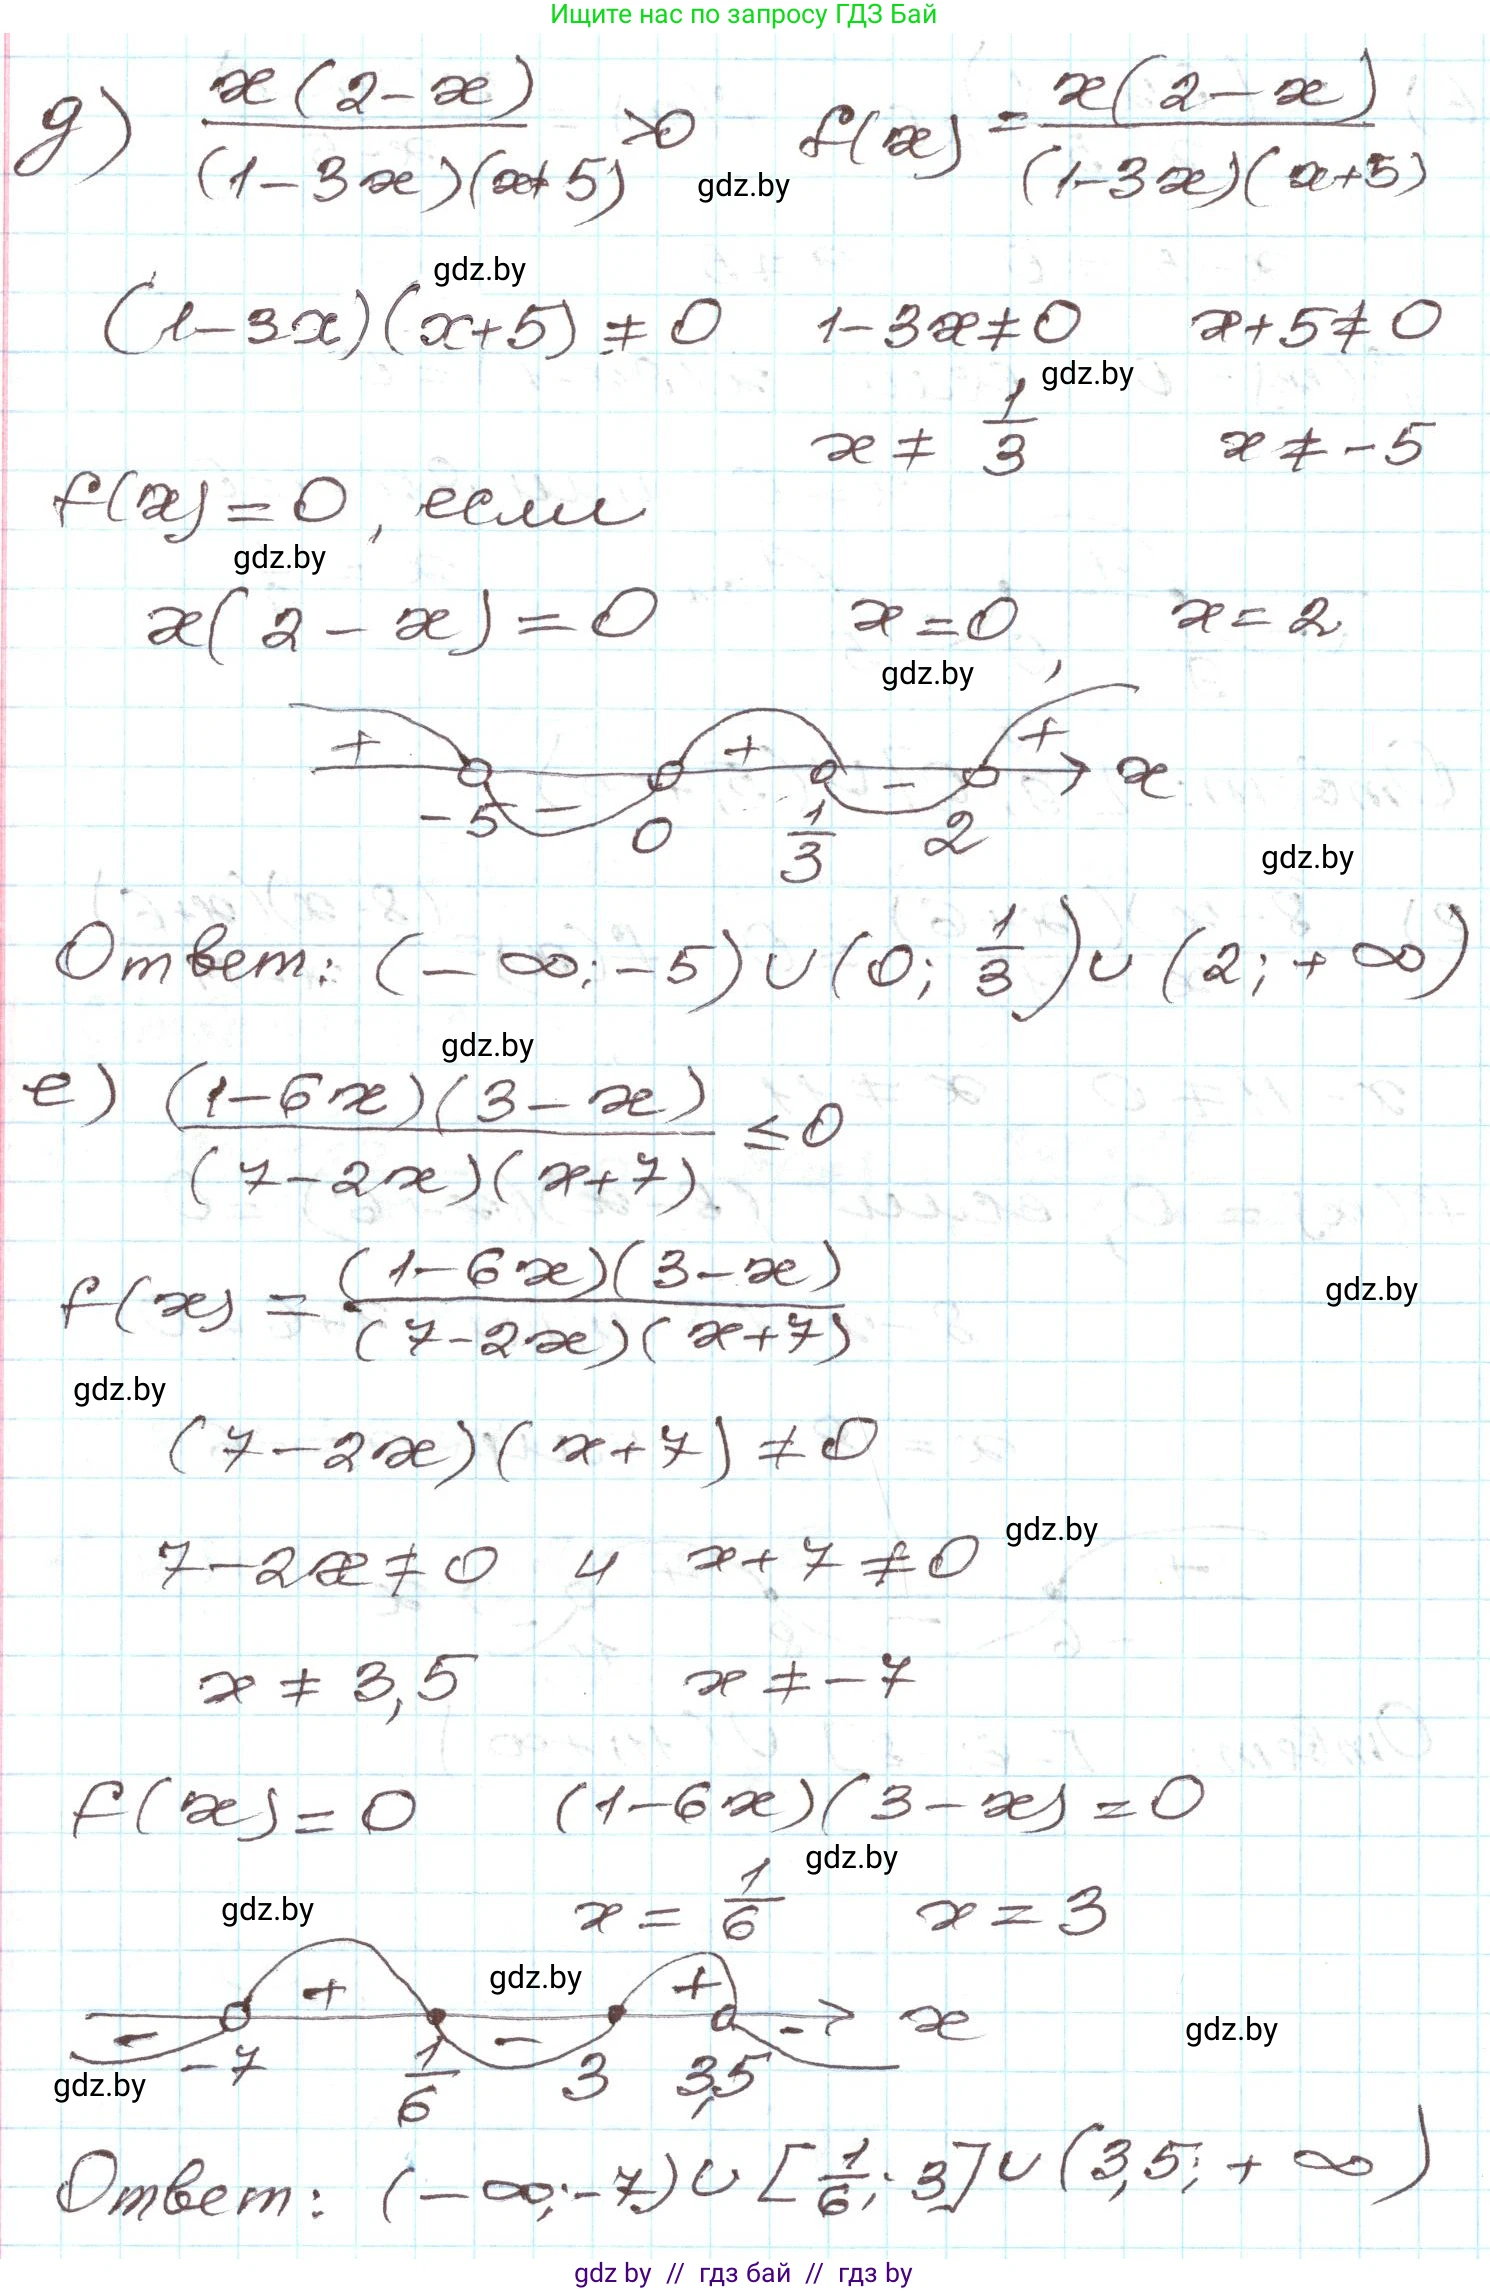 Ищите нас по запросу ГДЗ Бай
д) x(2-x)/((1-3x)(x+5)) >0 f(x) = x(2-x)/((1-3x)(x+5))
gdz.by
gdz.by
(1-3x)(x+5) ≠ 0 1-3x≠0 x+5≠0
gdz.by
x ≠ 1/3 x ≠ -5
f(x) = 0, если
gdz.by
x(2-x) = 0 x=0, x=2
gdz.by
+ - + - + x
-5 0 1/3 2
gdz.by
Ответ: (-∞; -5) ∪ (0; 1/3) ∪ (2; +∞)
gdz.by
е) (1-6x)(3-x)/((7-2x)(x+7)) ≤0
f(x) = (1-6x)(3-x)/((7-2x)(x+7))
gdz.by
gdz.by
(7-2x)(x+7) ≠0
gdz.by
7-2x≠0 и x+7≠0
x ≠ 3,5 x ≠ -7
f(x) = 0 (1-6x)(3-x) = 0
gdz.by
gdz.by
x = 1/6 x = 3
gdz.by
- + - + - x
gdz.by
-7 1/6 3 3,5
gdz.by
Ответ: (-∞; -7) ∪ [1/6; 3] ∪ (3,5; +∞)
gdz by // гдз бай // гдз by